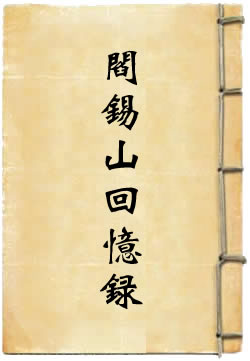 閻錫山回憶録